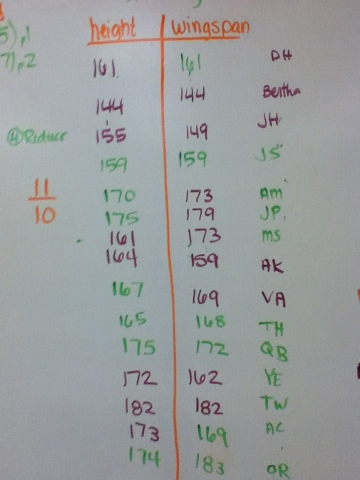 5), 1
height wingspan
7), 2
161 161 DH
144 144 Bertha
155 149 JH
@Reduce
159 159 JS
11
10
170 173 Am
175 179 JP.
161 173 ms
164 159 AK
167 169 VA
165 168 TH
175 172 QB
172 162 YE
182 182 TW
173 169 AC
174 183 OR